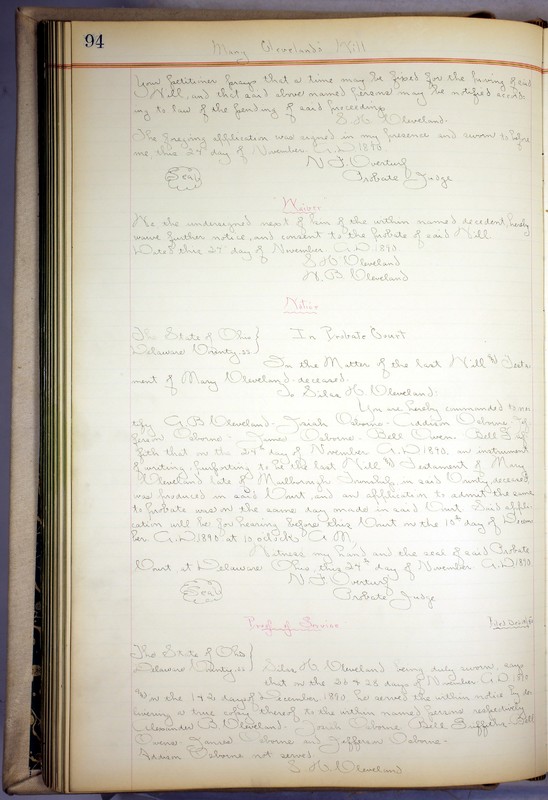 94
Mary Cleveland's Will
Your petitioner prays that a time may be fixed for the proving of said
Will, and that said above named persons may be notified accord-
ing to law of the pending of said proceedings
S. H. Cleveland.
The foregoing application was signed in my presence and sworn to before
me, this 24th day of November A.D. 1890
N. F. Overturf
Seal
Probate Judge
Waiver
We the undersigned next of kin of the within named decedent, hereby
waive further notice, and consent to the probate of said Will
Dated this 24 day of November A.D. 1890.
S. H. Cleveland
H. B. Cleveland
Notice
The State of Ohio } In Probate Court
Delaware County, ss
In the Matter of the last Will & Testa-
ment of Mary Cleveland, deceased.
To Silas H. Cleveland:
You are hereby commanded to no-
tify G. B. Cleveland - Josiah Osborne - Addison Osborne - Jef-
ferson Osborne - James Osborne - Bell Owen - Bell
that on the 24th day of November A.D. 1890, an instrument
of writing, purporting to be the last Will & Testament of Mary
Cleveland late of Marlborough Township in said County, deceased,
was produced in said Court, and an application to admit the same
to probate was on the same day made in said Court. Said appli-
cation will be for hearing before this Court on the 10th day of Decem-
ber A.D. 1890 at 10 o'clock A. M.
Witness my hand and the seal of said Probate
Court at Delaware Ohio, this 24th day of November A.D. 1890.
N. F. Overturf
Seal
Probate Judge
Proof of Service
The State of Ohio }
Delaware County, ss Silas H. Cleveland being duly sworn, says
that on the 26 & 28 days of November A.D. 1890
& on the 1 & 2 days of December, 1890, he served the within notice by de-
livering a true copy thereof to the within named persons respectively
Alexander B. Cleveland - Josiah Osborne Bell Griffith - Bell
Owen James Osborne and Jefferson Osborne -
Addison Osborne not served
S. H. Cleveland